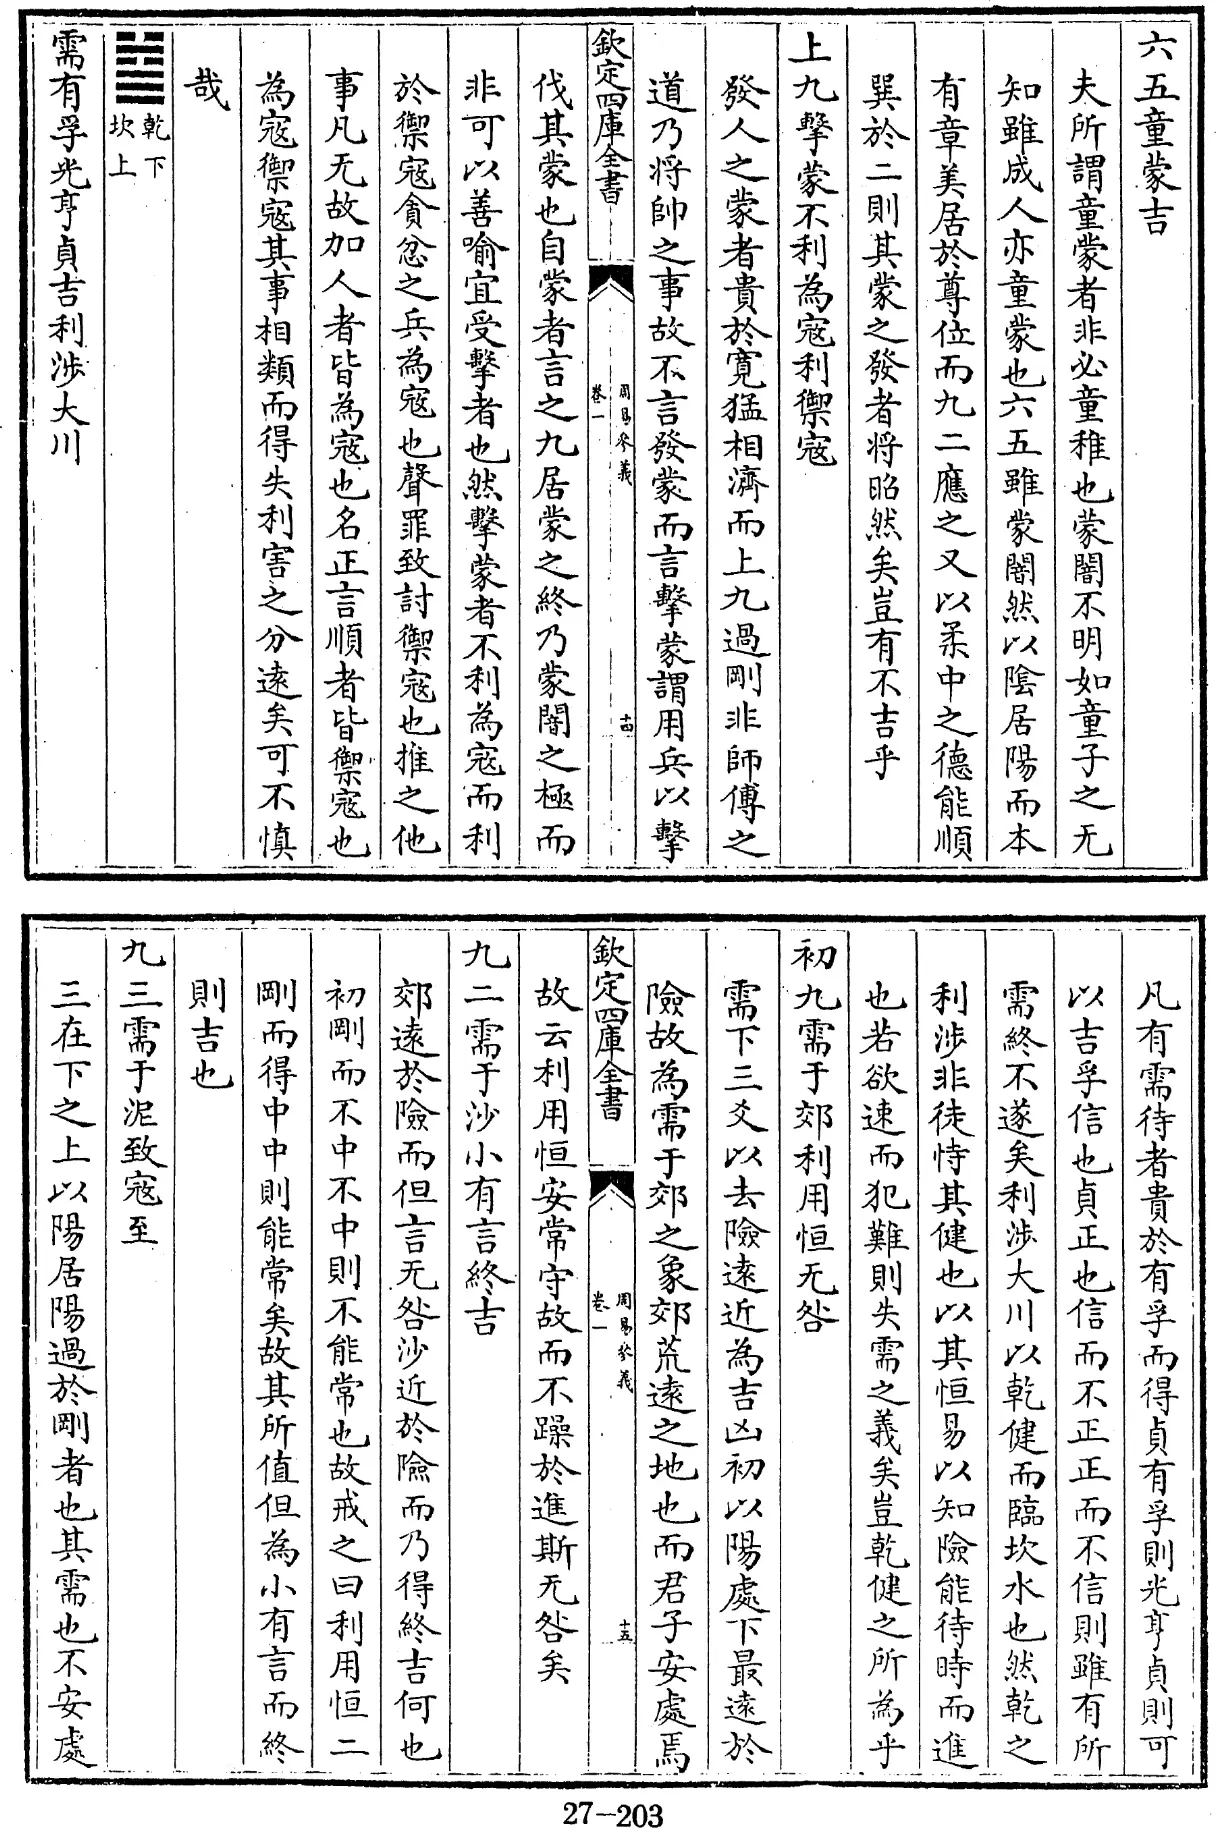 六五童蒙吉
夫所謂童蒙者非必童稚也蒙闇不明如童子之无
知雖成人亦童蒙也六五雖蒙闇然以陰居陽而本
有章美居於尊位而九二應之又以柔中之德能順
巽於二則其蒙之發者将昭然矣豈有不吉乎
上九擊蒙不利為寇利禦寇
發人之蒙者貴於寛猛相濟而上九過剛非師傅之
道乃将帥之事故不言發蒙而言擊蒙謂用兵以擊
欽定四庫全書
周易參義
卷一
十四
伐其蒙也自蒙者言之九居蒙之終乃蒙闇之極而
非可以善喻宜受擊者也然擊蒙者不利為寇而利
於禦寇貪忿之兵為寇也聲罪致討禦寇也推之他
事凡无故加人者皆為寇也名正言順者皆禦寇也
為寇禦寇其事相類而得失利害之分遠矣可不慎
哉
䷄
乾下
坎上
需有孚光亨貞吉利渉大川
凡有需待者貴於有孚而得貞有孚則光亨貞則可
以吉孚信也貞正也信而不正正而不信則雖有所
需終不遂矣利渉大川以乾健而臨坎水也然乾之
利渉非徒恃其健也以其恒易以知險能待時而進
也若欲速而犯難則失需之義矣豈乾健之所為乎
初九需于郊利用恒无咎
需下三爻以去險遠近為吉凶初以陽處下最遠於
險故為需于郊之象郊荒遠之地也而君子安處焉
欽定四庫全書
周易參義
卷一
十五
故云利用恒安常守故而不躁於進斯无咎矣
九二需于沙小有言終吉
郊遠於險而但言无咎沙近於險而乃得終吉何也
初剛而不中不中則不能常也故戒之曰利用恒二
剛而得中中則能常矣故其所值但為小有言而終
則吉也
九三需于泥致寇至
三在下之上以陽居陽過於剛者也其需也不安處
27-203